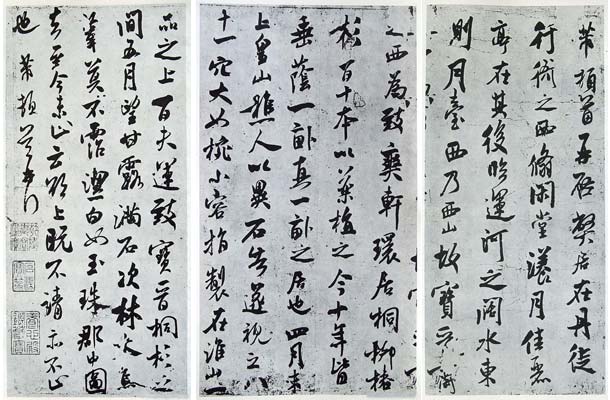 芾頓首再啓弊居在丹徒
行衙之西翛閑堂漾月佳麗
亭在其後臨運河之闊水東
則月臺西乃西山故寶晉齋
之西為致爽軒環居桐柳椿
杉百十本以藥植之今十年皆
垂蔭一畝真一畝之居也四月末
上皇山樵人以異石告遂視之八
十一穴大如椀小容指製在淮山一
品之上百夫運致寶晉桐杉之
間五月望甘露滿石次林次蕉
等莫不霑潔白如玉珠郡中圖
去至今未止云欲上既不請亦不止
也芾頓首再拜